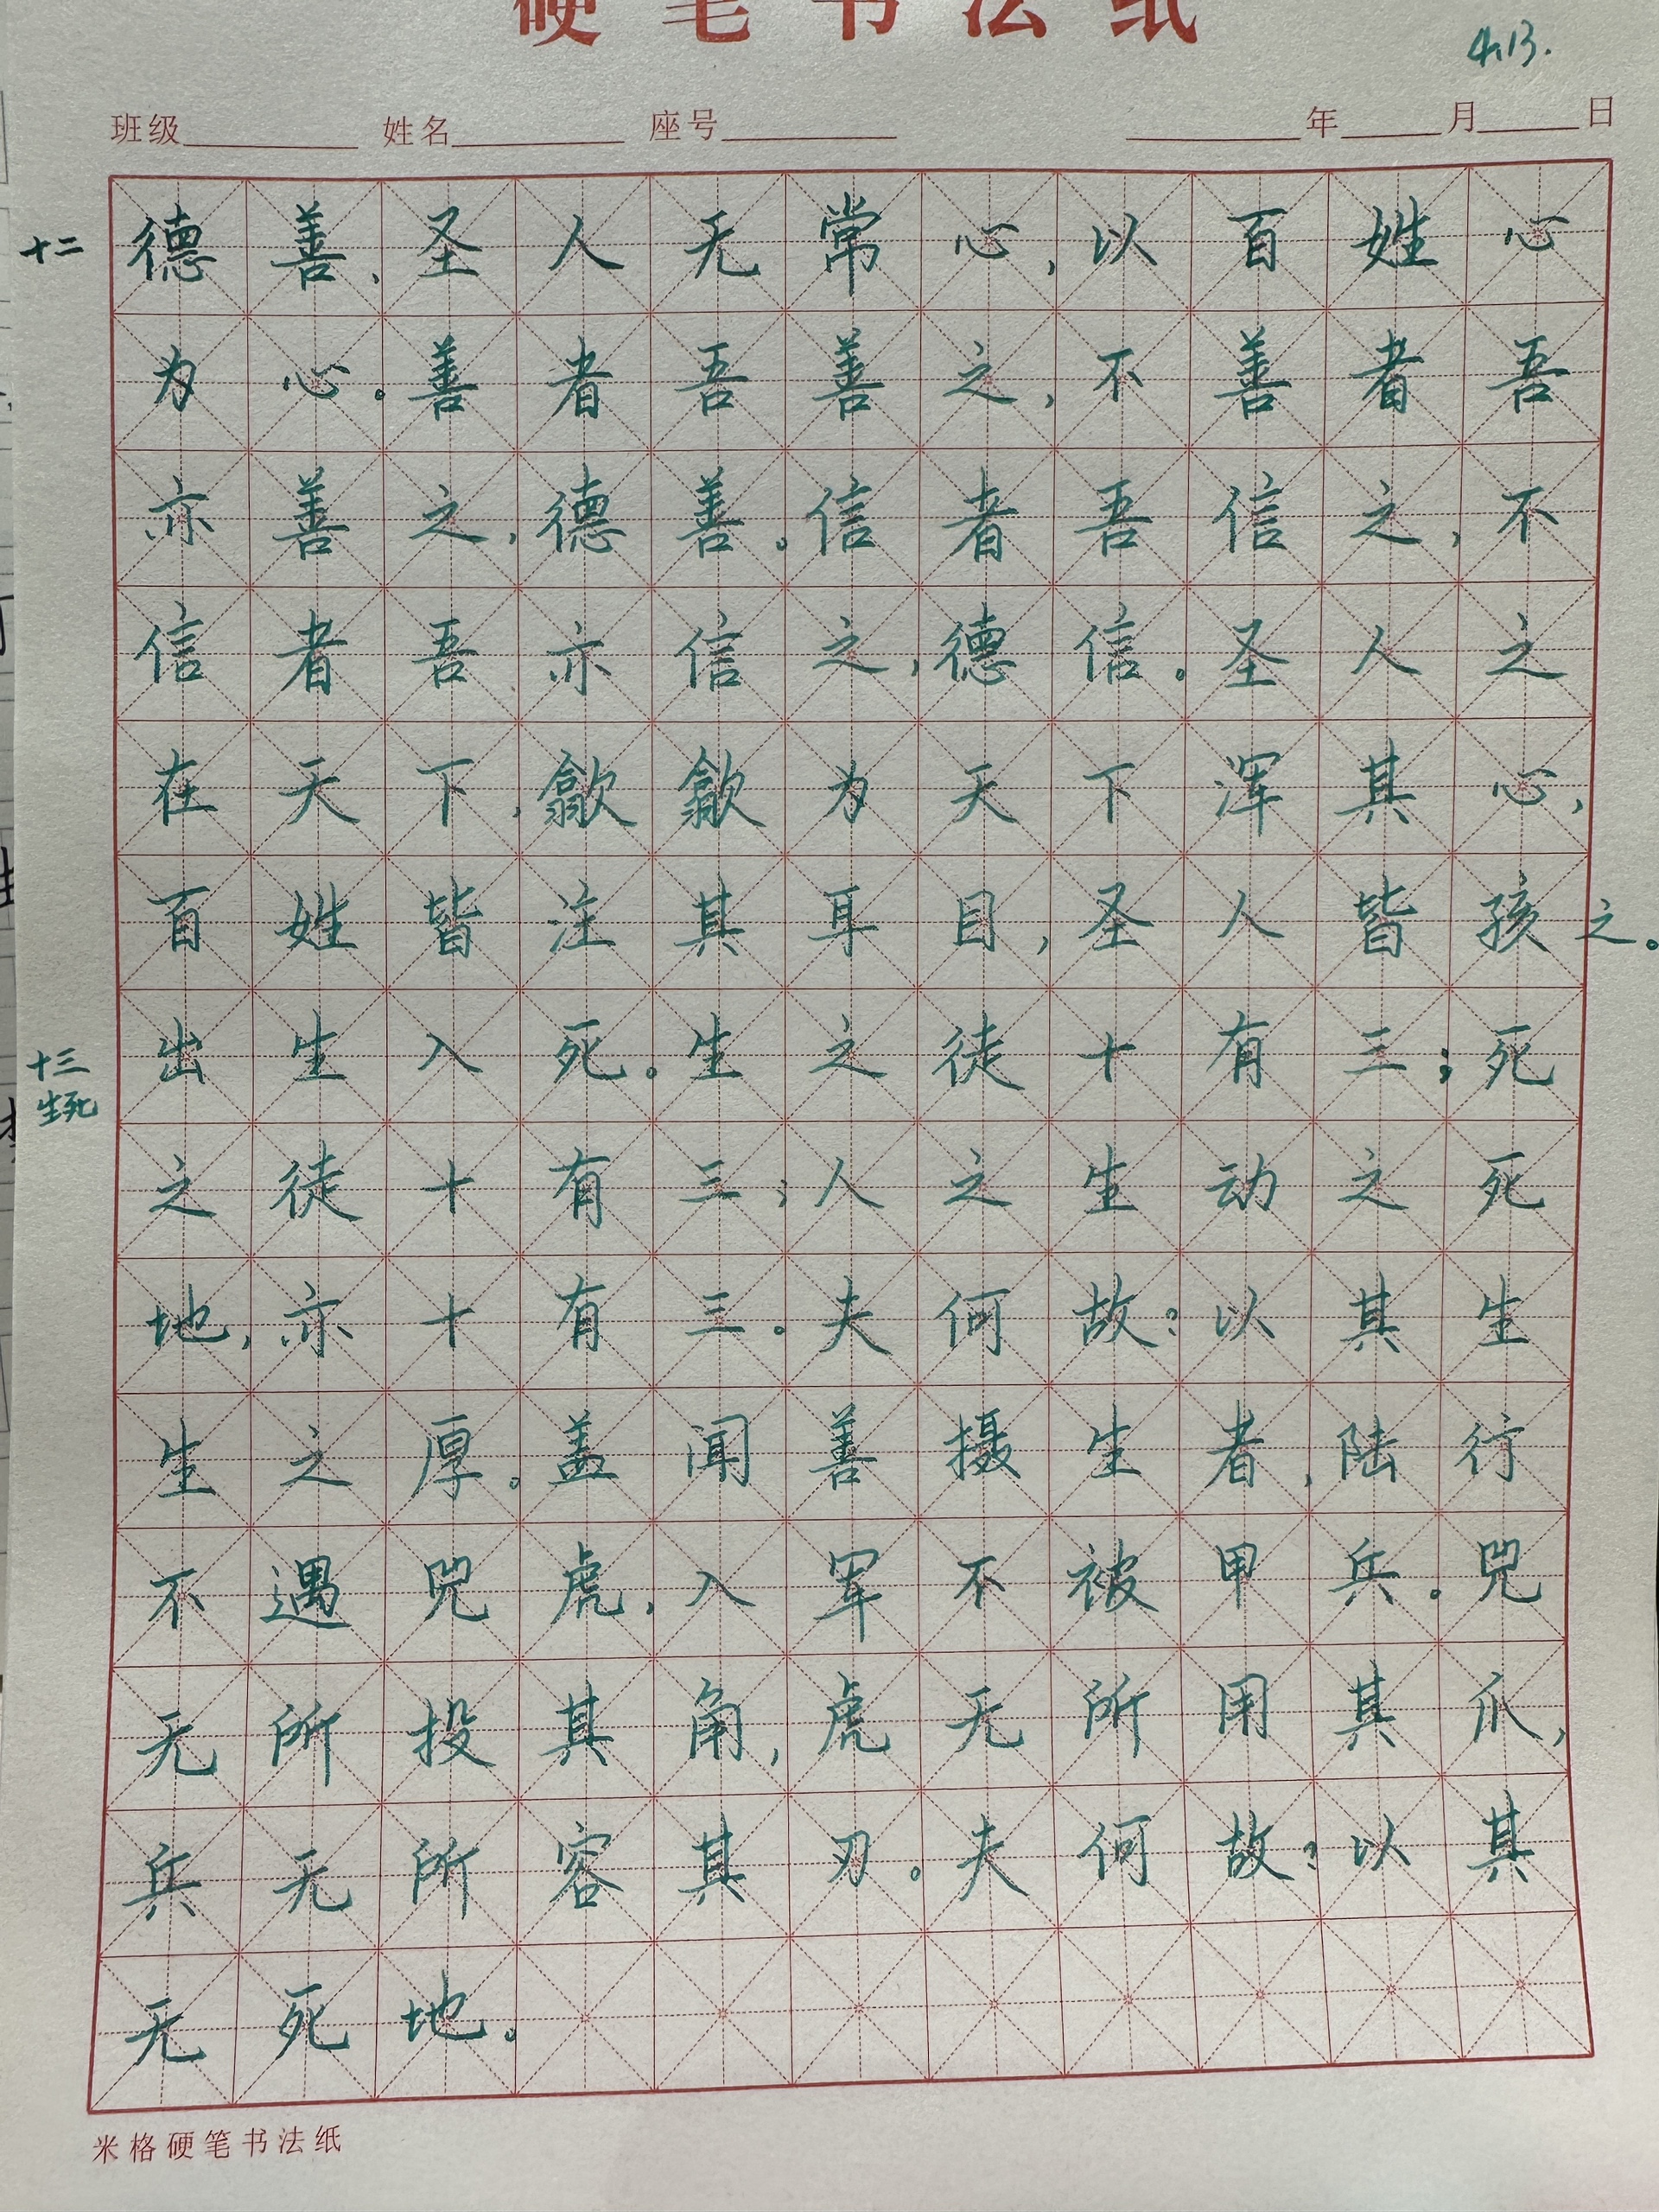 硬笔书法纸
4.13.
班级 姓名 座号 年 月 日
十二 德善、圣人无常心,以百姓心
为心。善者吾善之,不善者吾
亦善之,德善。信者吾信之,不
信者吾亦信之,德信。圣人之
在天下,歙歙为天下浑其心,
百姓皆注其耳目,圣人皆孩之。
十三 生死 出生入死。生之徒十有三;死
之徒十有三;人之生动之死
地,亦十有三。夫何故?以其生
生之厚。盖闻善摄生者,陆行
不遇兕虎,入军不被甲兵。兕
无所投其角,虎无所用其爪,
兵无所容其刃。夫何故?以其
无死地。
米格硬笔书法纸